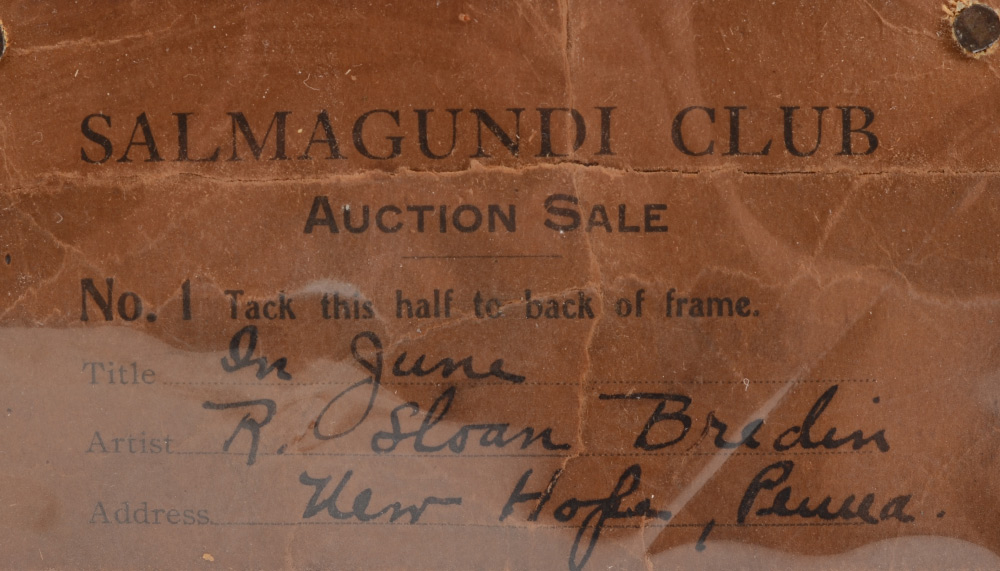 SALMAGUNDI CLUB
AUCTION SALE
No. 1 Tack this half to back of frame.
Title In June
Artist R. Sloan Bredin
Address New Hope, Penna.